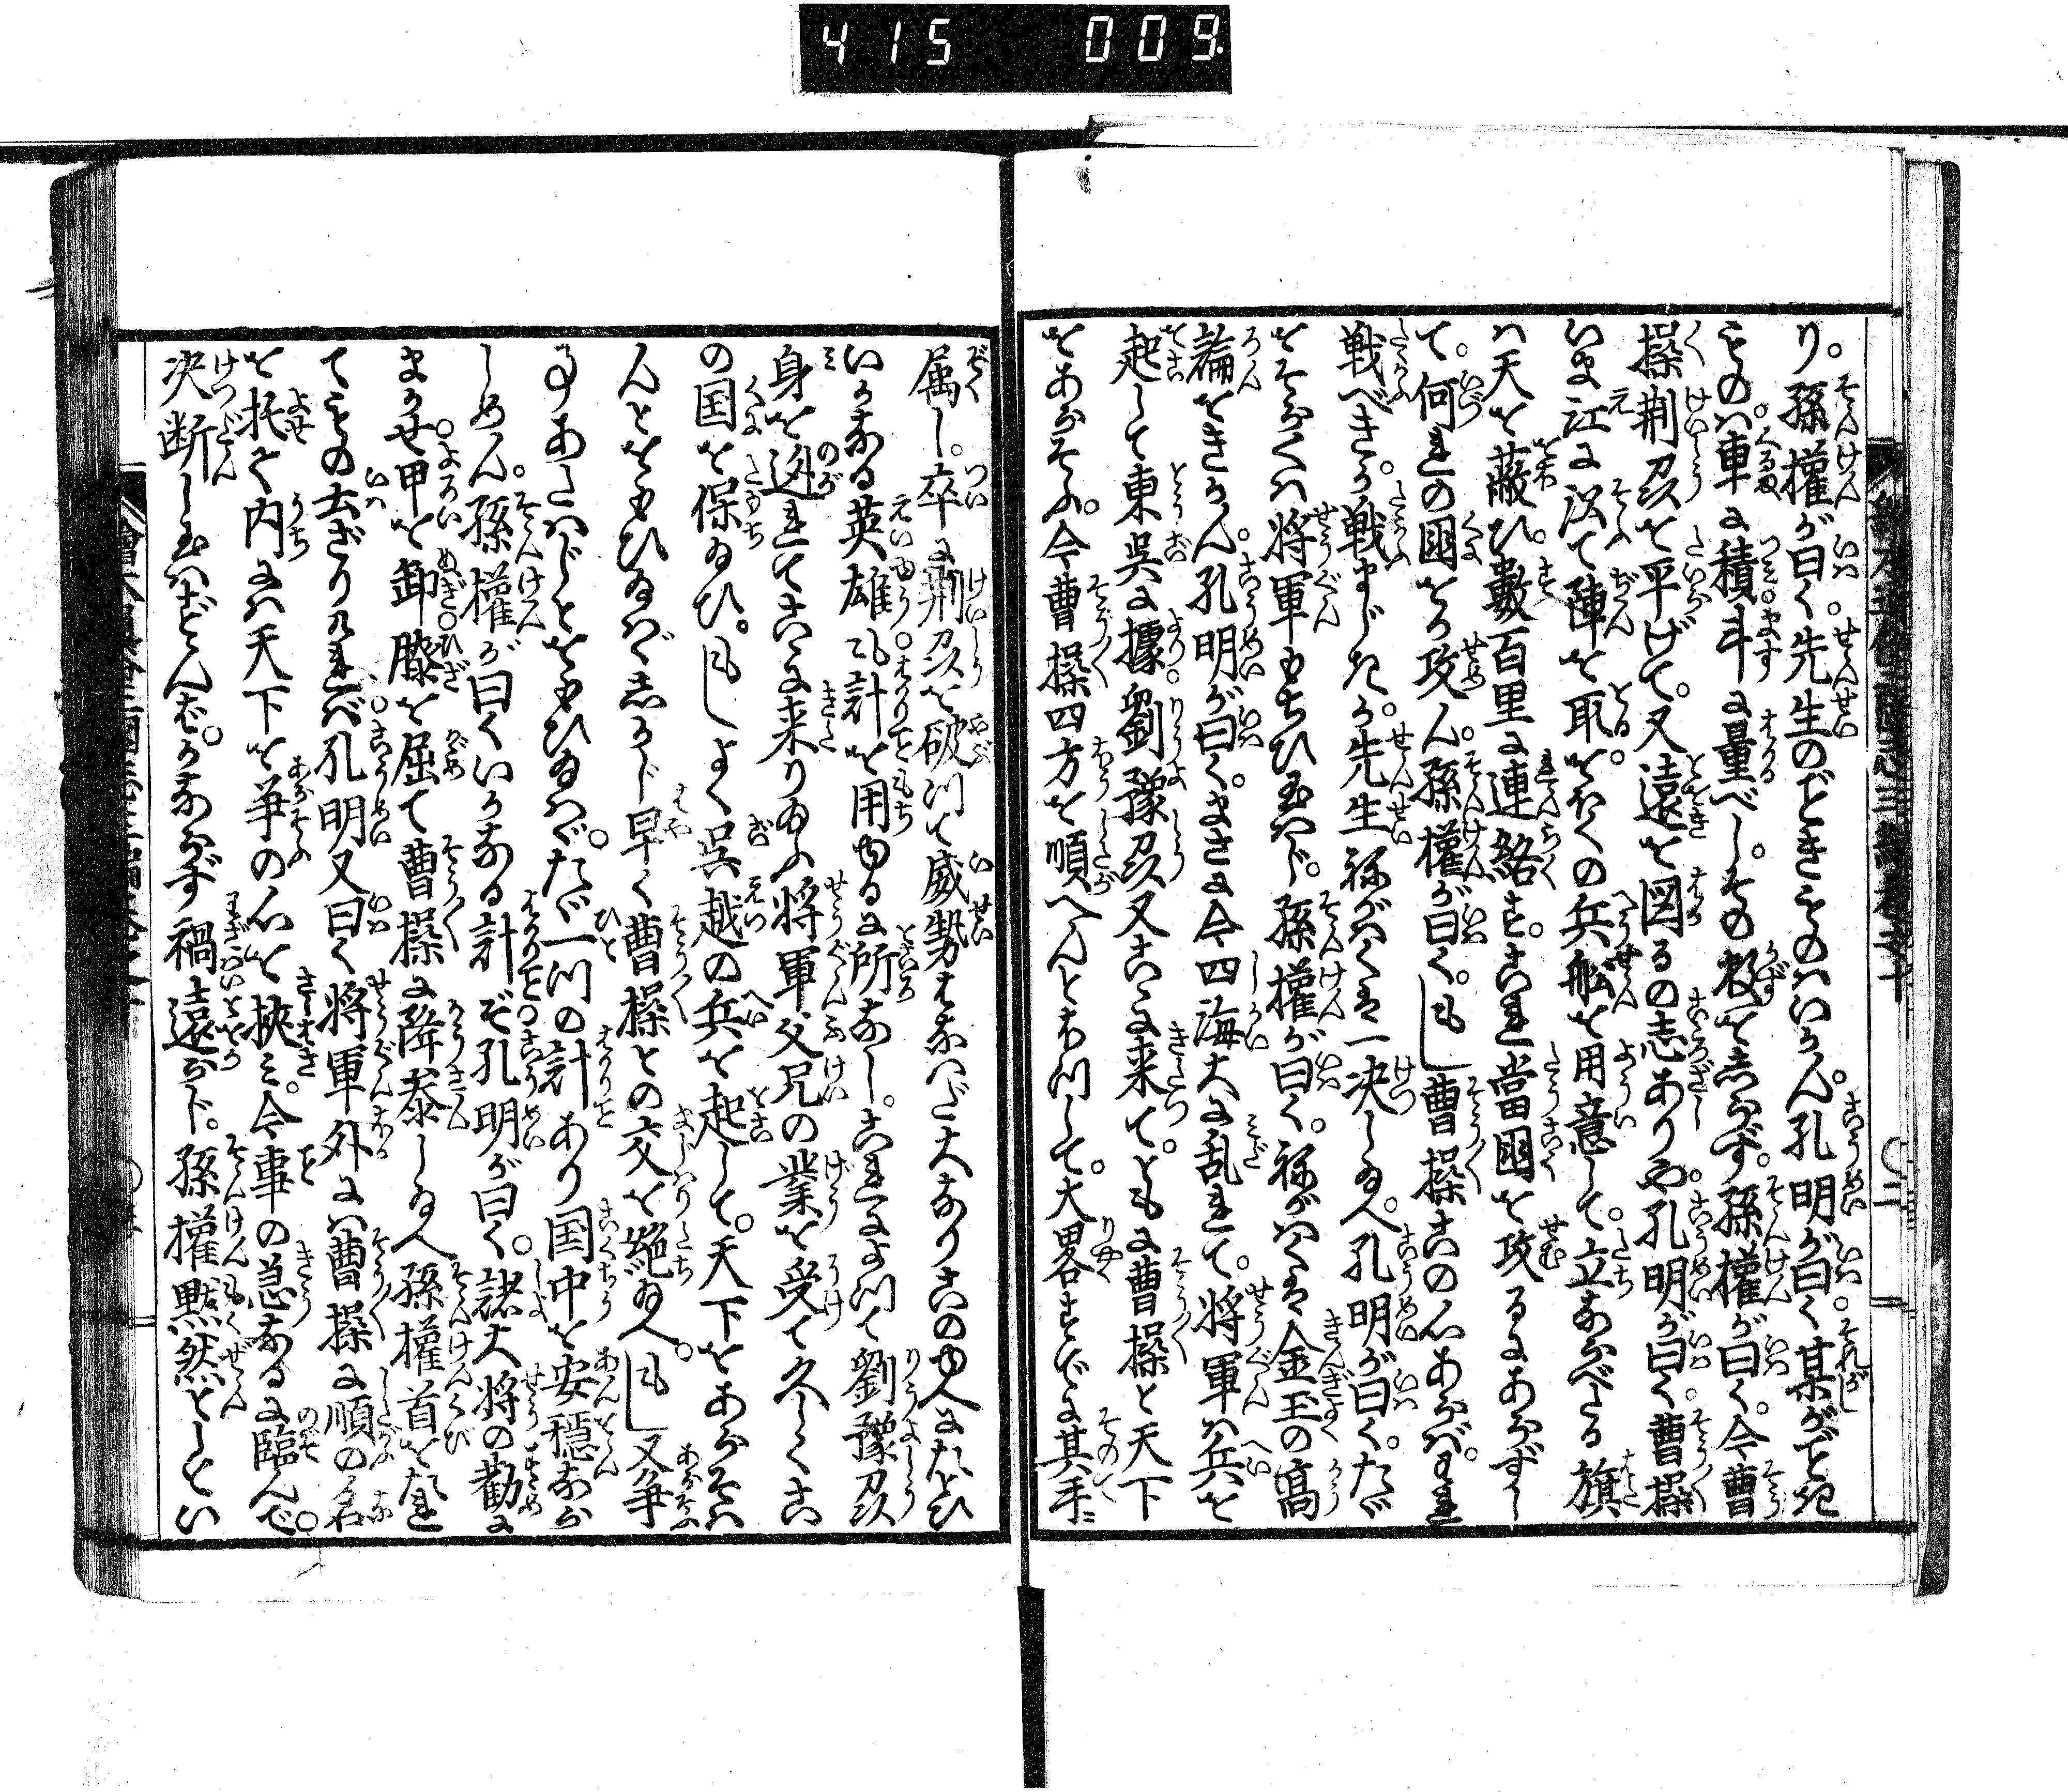 415 009
り。孫權が曰く先生のごときものいかん。孔明が曰く某がごとき
ものハ車に積斗に量べし。その数をしらず。孫權が曰く。今曹
操荆州を平げて。又遠を図るの志ありや。孔明が曰く曹操
いま江に沿て陣を取。そくの兵舩を用意して。立ならべたる旗
ハ天を蔽ひ。數百里に連絡す。これ當國を攻るにあらずし
て。何れの國をか攻ん。孫權が曰く。もし曹操この心あらバ。われ
戦べきか。戦まじきか。先生ねがハくは一決し給へ。孔明が曰く。たゞ
をそらくハ将軍もちひ玉ハじ。孫權が曰く。ねがハくは金玉の高
論をきかん。孔明が曰く。まさに今四海大に乱れて。将軍ハ兵を
起して東呉に據。劉豫州又こゝに来て。ともに曹操と天下
をあらそふ。今曹操四方を順へんとほつして。大畧すでに其手に
属し。卒に荆州を破つて威勢はなハだ大なり。このゆへにたとひ
いかなる英雄も計を用ゆるに所なし。これによつて劉豫州
身を迯れてこゝに来り給ふ。将軍父兄の業を受て久しくこ
の国を保給ひ。もしよく呉越の兵を起して。天下をあらそハ
んとをもひ給ハゞしかじ早く曹操との交を絶給へ。もし又争
事あたハじとをもひ給ハゞ。たゞ一つの計あり国中を安穩なら
しめん。孫權が曰くいかなる計ぞ孔明が曰く。諸大将の勸に
まかせ甲を卸膝を屈て曹操に降参し給へ孫權首をたれ
てものも云ざりけれバ孔明又曰く将軍外にハ曹操に順の名
を托て内にハ天下を争の心を挾み。今事の急なるに臨んで。
决断し玉ハずんば。かならず禍遠からじ。孫權黙然としてい